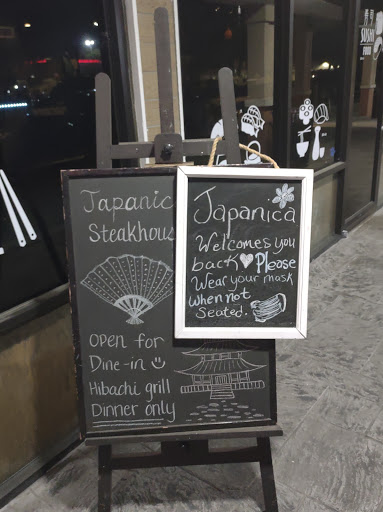 Japanic
Steakhous
OPEN for
Dine-in
Hibachi grill
Dinner only
Japanica
Welcomes you
back Please
Wear your mask
When not
Seated.
SUSHI
FOOD